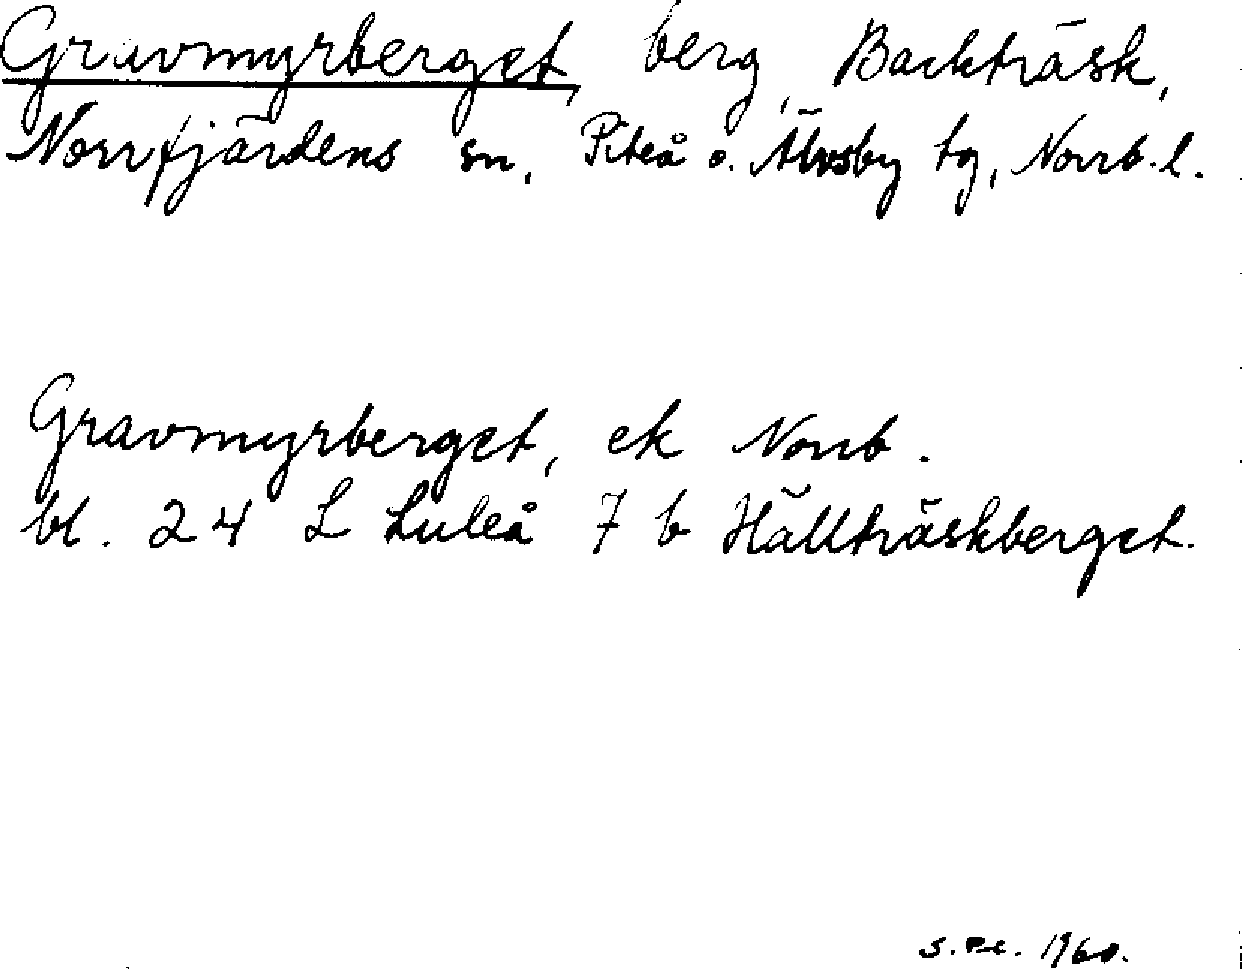 Gravmyrberget, berg, Backträsk,
Norrfjärdens sn, Piteå o. Älvsby tg, Norrb. l.
Gravmyrberget, ek Norrb.
bl. 24 L Luleå 7 b Hällträskberget.
1960.